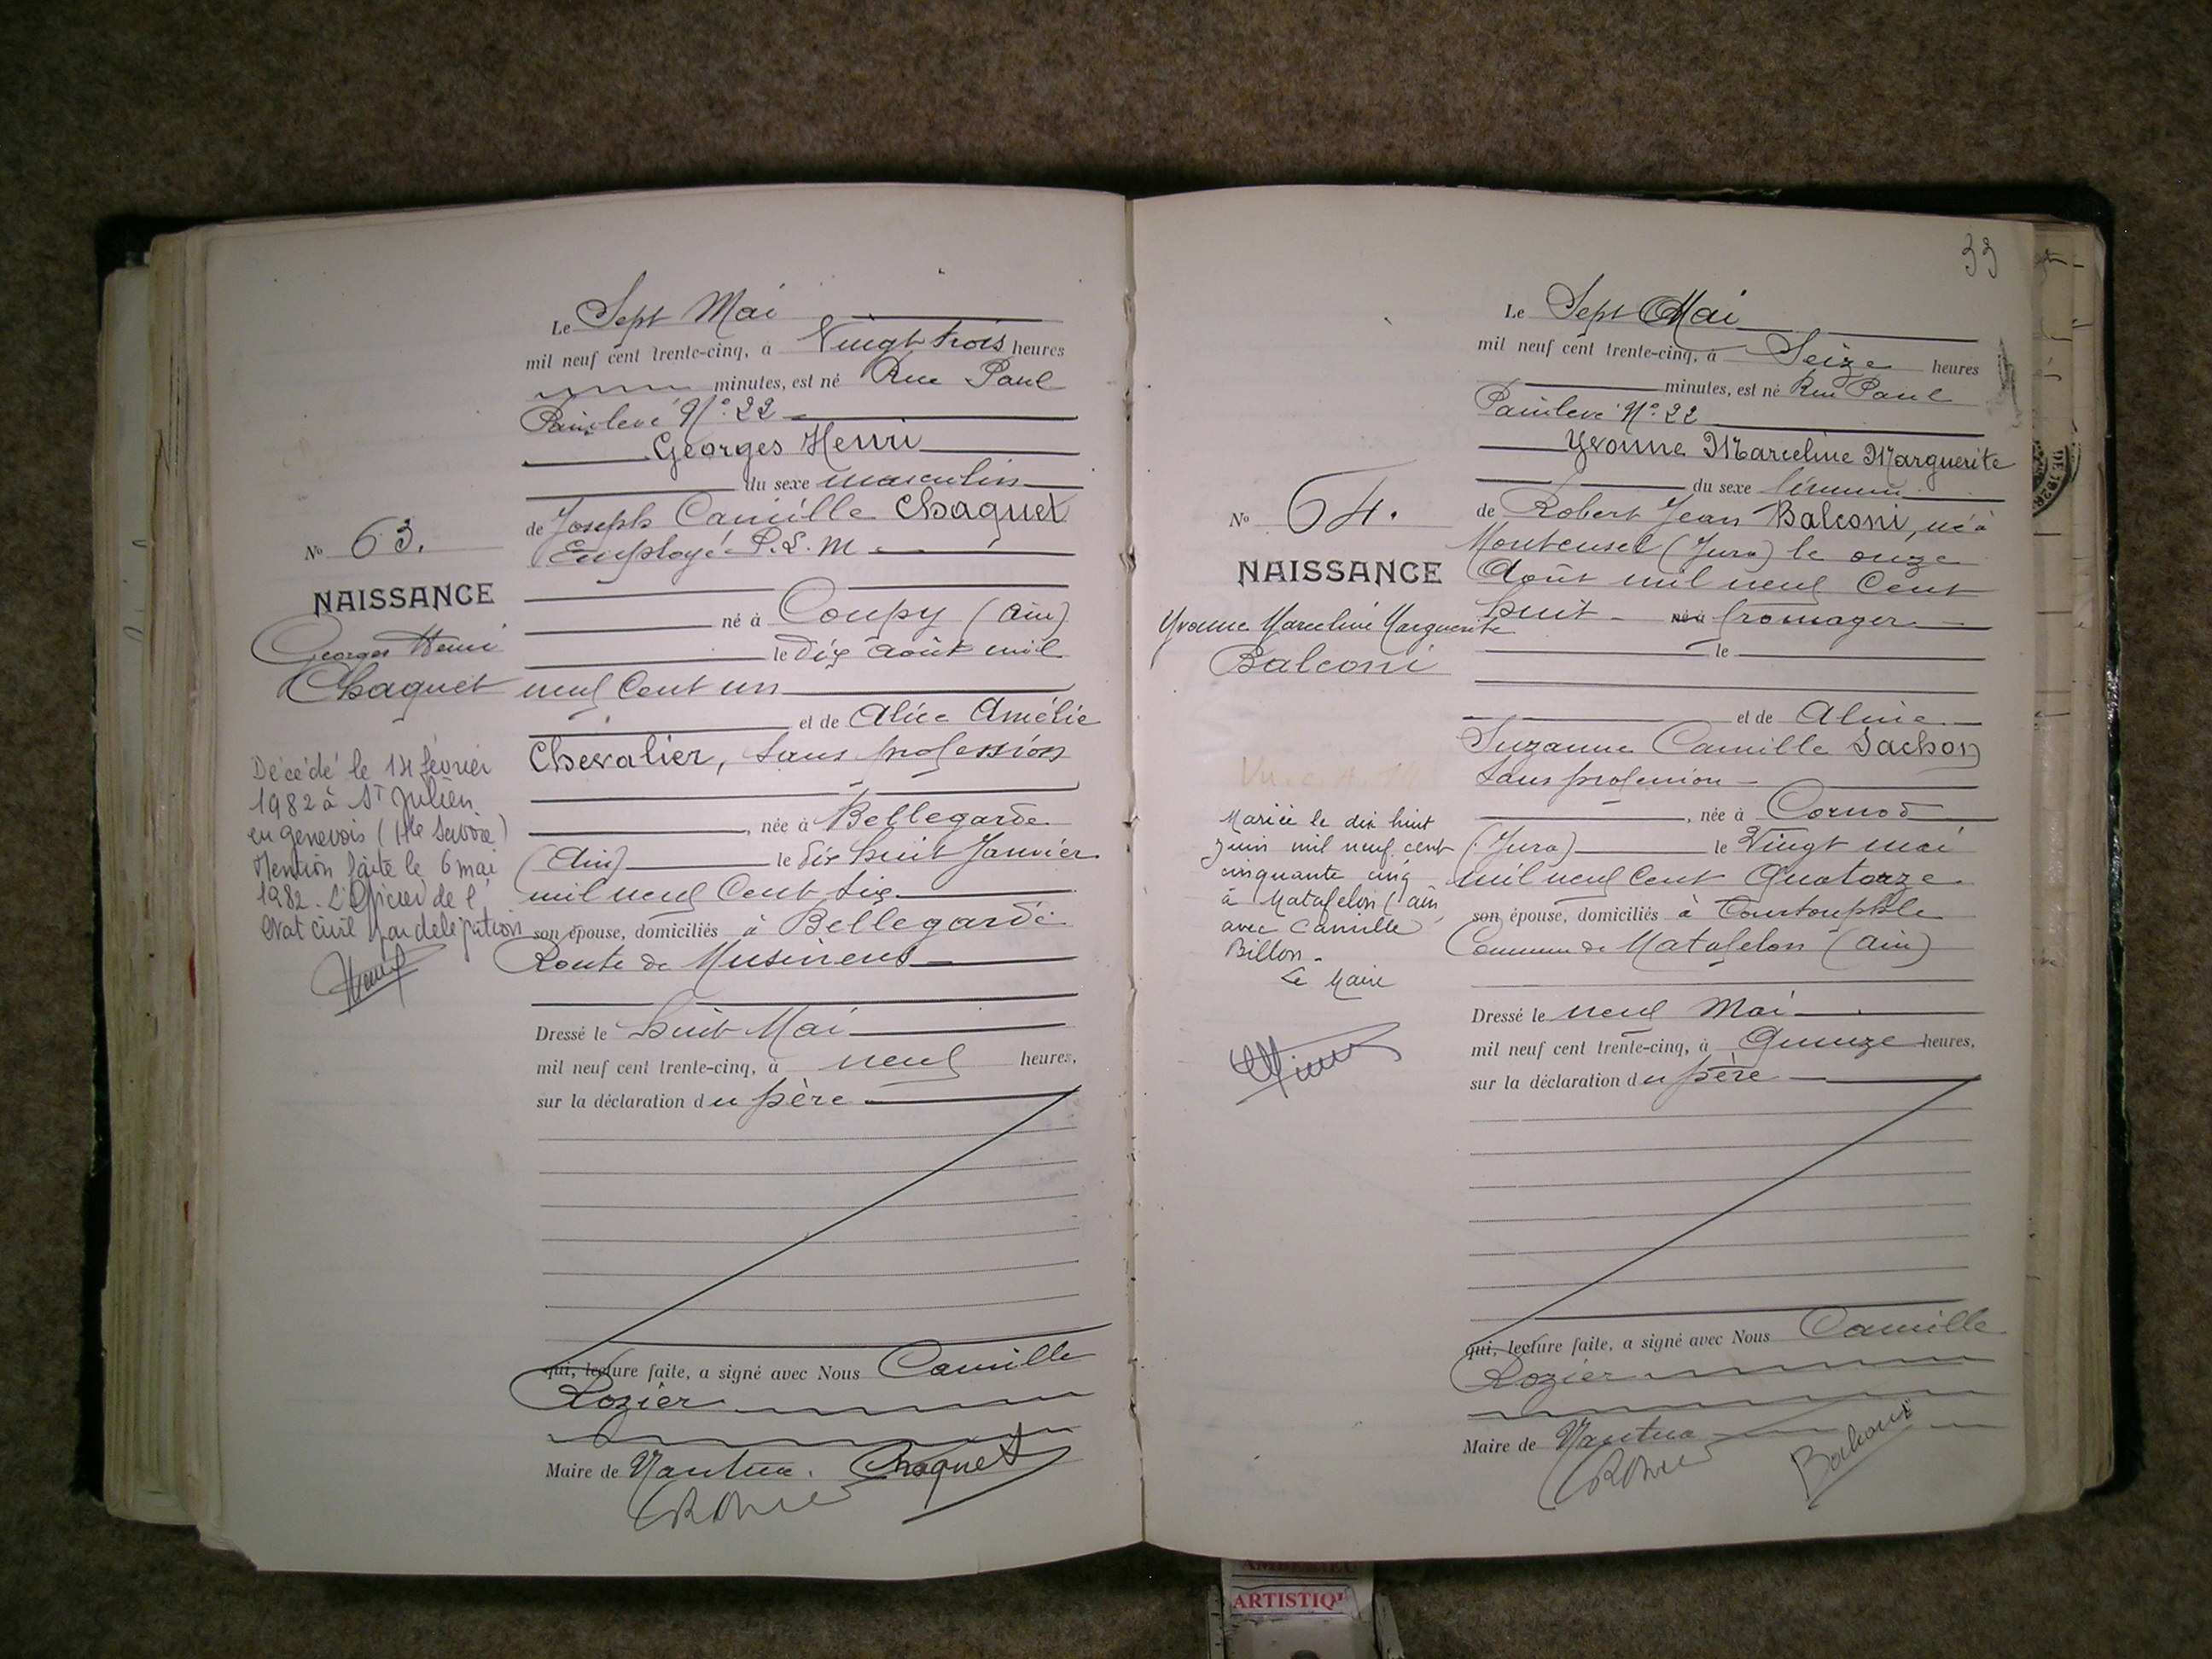 Le Sept Mai
mil neuf cent trente-cinq, à Vingt trois heures
minutes, est né Rue Paul
Painlevé N° 22
Georges Henri
du sexe masculin
de Joseph Camille Chaquet
Employé P.L.M
né à Coupy (Ain)
le dix août mil
neuf cent un
et de Alice Amélie
Chevalier, sans profession
, née à Bellegarde
(Ain) le dix huit Janvier
mil neuf cent six
son épouse, domiciliés à Bellegarde
Route de Musinens
Dressé le huit Mai
mil neuf cent trente-cinq, à neuf heures,
sur la déclaration du père
qui, lecture faite, a signé avec Nous Camille
Rozier
Maire de Nantua. Chaquet
N° 63.
NAISSANCE
Georges Henri
Chaquet
Décédé le 14 février
1982 à St Julien
en genevois (Hte Savoie)
Mention faite le 6 mai
1982. L'Officier de l'
Etat civil par délégation
33
Le Sept Mai
mil neuf cent trente-cinq, à Seize heures
minutes, est né Rue Paul
Painlevé N° 22
Yvonne Marceline Marguerite
du sexe féminin
de Robert Jean Balconi, né à
(Jura) le onze
Août mil neuf cent
huit né à fromager
le
et de Aline
Suzanne Camille Sachon
sans profession
, née à Cornod
(Jura) le Vingt mai
mil neuf cent Quatorze
son épouse, domiciliés à
Commune de Matafelon (Ain)
Dressé le neuf Mai
mil neuf cent trente-cinq, à Quinze heures,
sur la déclaration du père
qui, lecture faite, a signé avec Nous Camille
Rozier
Maire de Nantua
Balconi
N° 64.
NAISSANCE
Yvonne Marceline Marguerite
Balconi
Mariée le dix huit
juin mil neuf cent
cinquante cinq
à Matafelon (Ain)
avec Camille
Billon.
Le Maire
ARTISTIQ